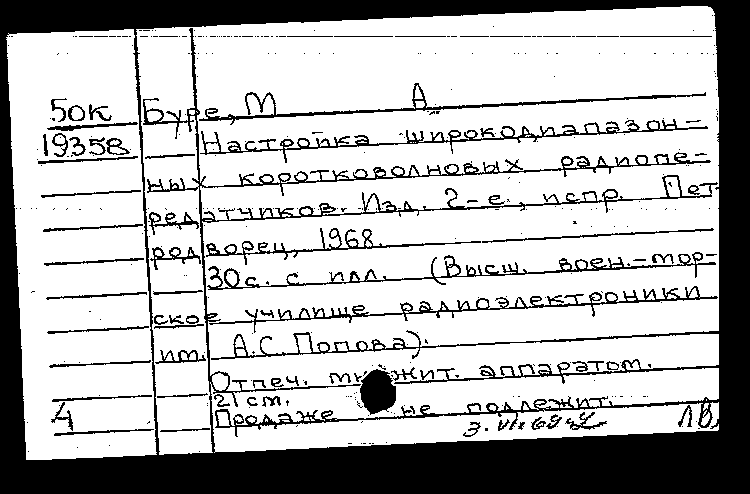 50к Буре, М А.
19358 Настройка широкодиапазон-
ных коротковолновых радиопе-
редатчиков. Изд. 2-е, испр. Пет-
родворец, 1968.
30с. с илл. (Высш. воен.-мор-
ское училище радиоэлектроники
им. А.С. Попова).
Отпеч. мн жит. аппаратом.
21 см.
4 Продаже не подлежит.
3.VI-69 ЛВ